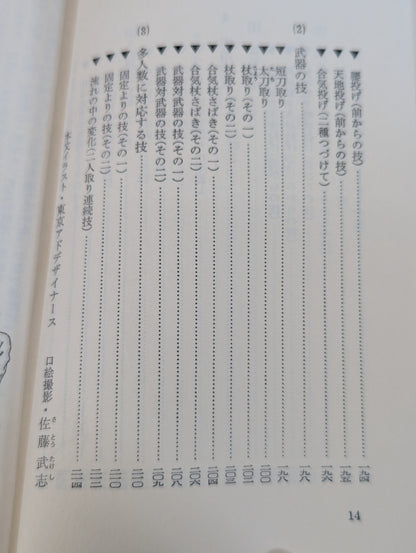 ▼腰投げ(前からの技)……一九四
▼天地投げ(前からの技)……一九五
▼合気投げ(二種つづけて)……一九六
(2) 武器の技
▼短刀取り……一九八
▼太刀取り……二〇〇
▼杖取り(その一)……二〇二
▼杖取り(その二)……二〇三
▼合気杖さばき(その一)……二〇四
▼合気杖さばき(その二)……二〇六
▼武器対武器の技(その一)……二〇八
▼武器対武器の技(その二)……二〇九
(3) 多人数に対応する技……二一〇
▼固定よりの技(その一)……二一〇
▼固定よりの技(その二)……二一二
▼流れの中の変化(二人取り連続技)……二一四
本文イラスト・東京アドデザイナース
口絵撮影・佐藤武志
さとうたけし
14